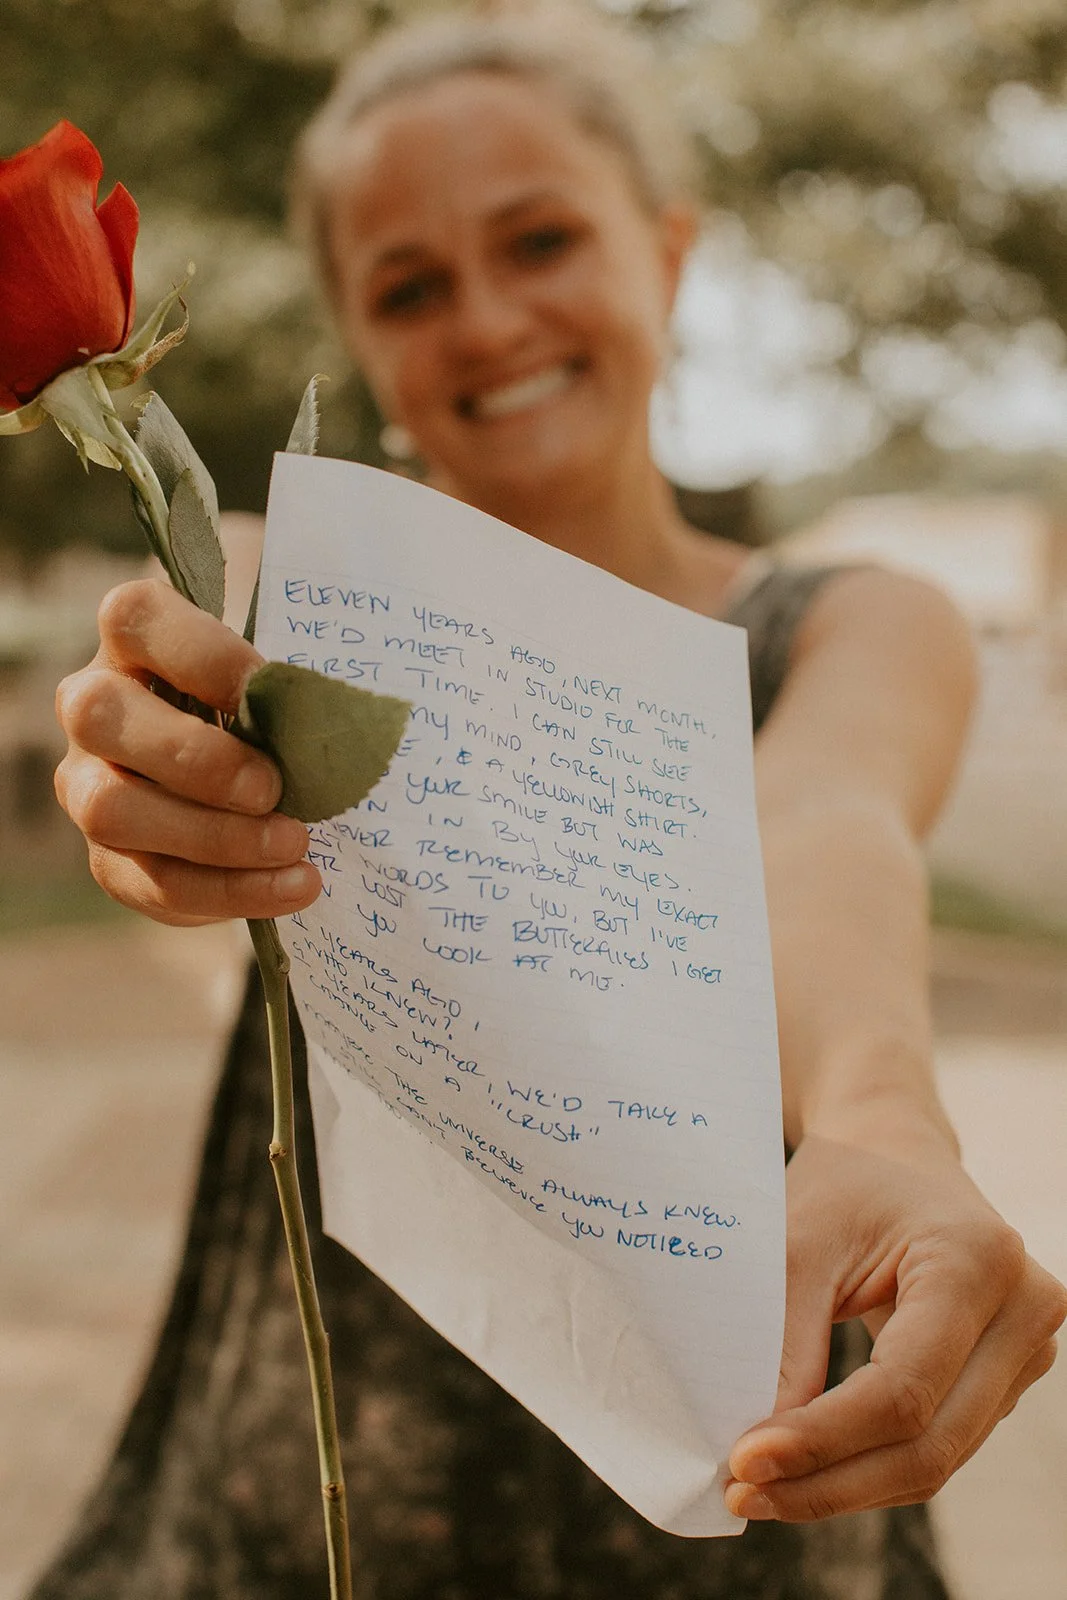 ELEVEN YEARS AGO, NEXT MONTH,
WE'D MEET IN STUDIO FOR THE
FIRST TIME. I CAN STILL SEE
MY MIND, GREY SHORTS,
, & A YELLOWISH SHIRT.
YOUR SMILE BUT WAS
IN BY YOUR EYES.
NEVER REMEMBER MY EXACT
WORDS TO YOU, BUT I'VE
LOST THE BUTTERFLIES I GET
YOU LOOK AT ME.
11 YEARS AGO,
WHO KNEW?
YEARS LATER, WE'D TAKE A
CHANGE ON A "CRUSH"
MAYBE THE UNIVERSE ALWAYS KNEW.
I STILL CAN'T BELIEVE YOU NOTICED